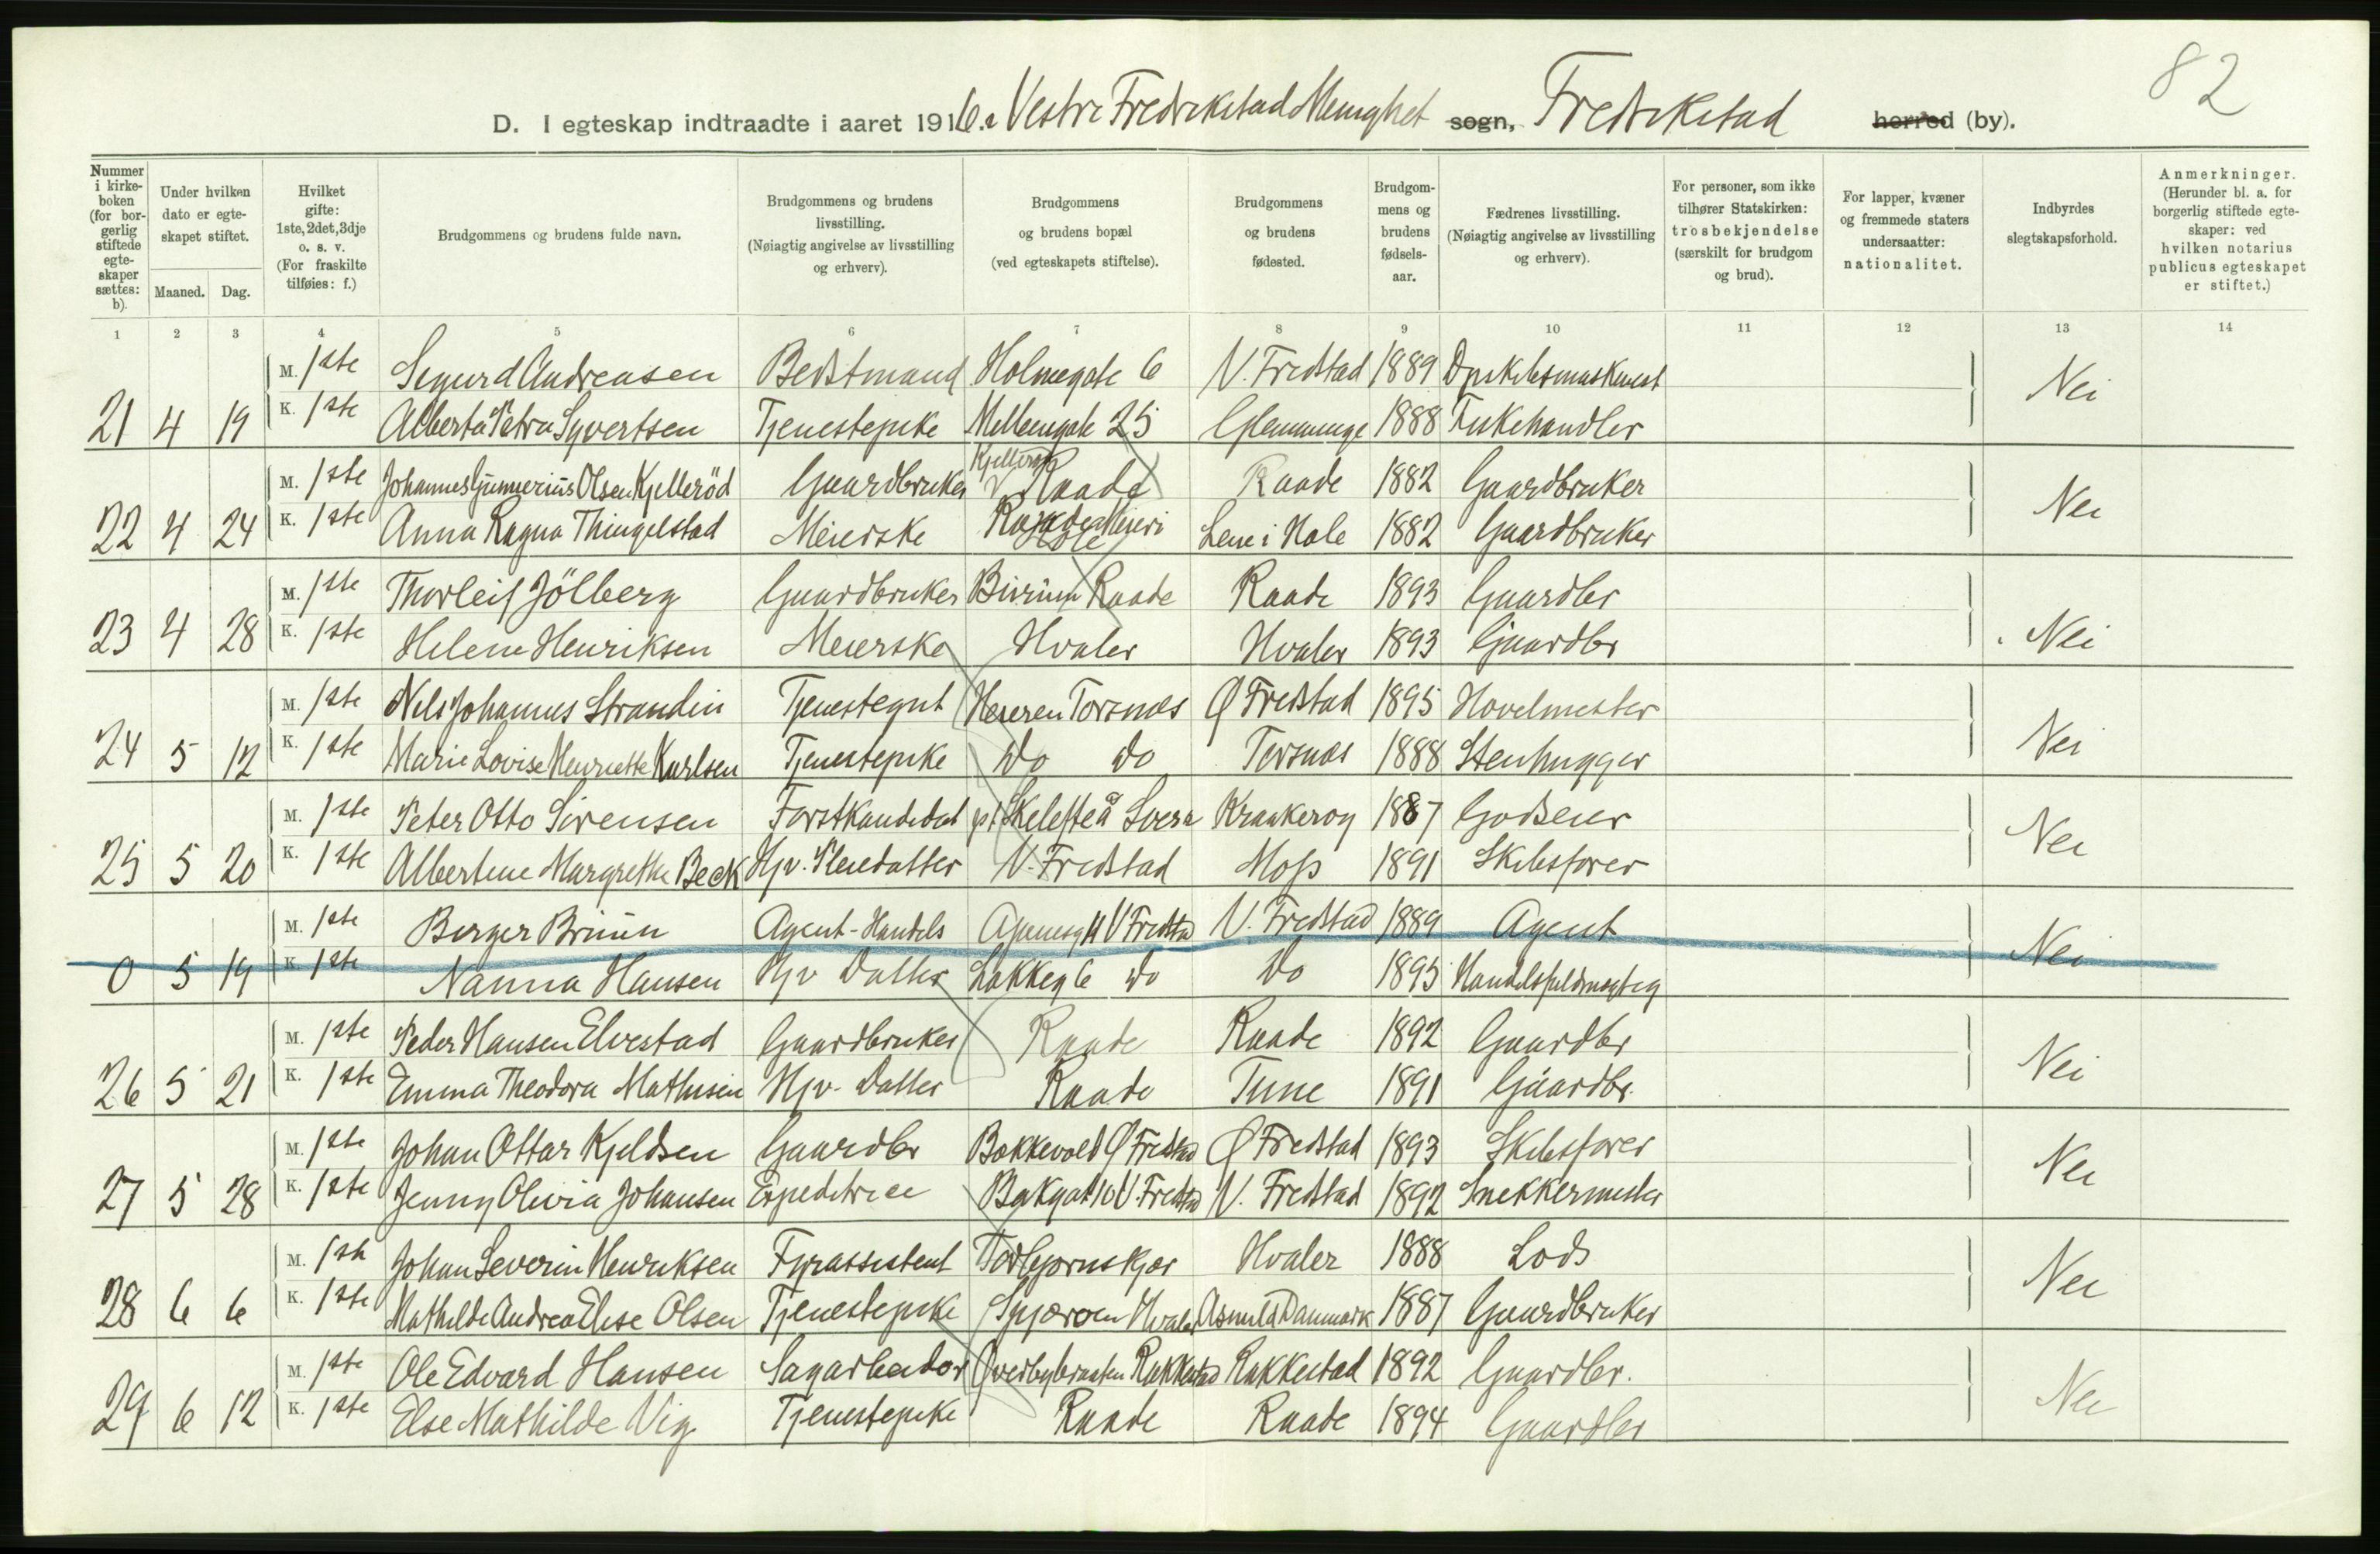 82
D. I egteskap indtraadte i aaret 1916. Vestre Fredrikstad Menighet sogn, Fredrikstad herred (by).
Nummer i kirke-boken (for bor-gerlig stiftede egte-skaper sættes: b).
Under hvilken dato er egte-skapet stiftet.
Maaned. Dag.
Hvilket gifte: 1ste, 2det, 3dje o. s. v. (For fraskilte tilføies: f.)
Brudgommens og brudens fulde navn.
Brudgommens og brudens livsstilling. (Nøiagtig angivelse av livsstilling og erhverv).
Brudgommens og brudens bopæl (ved egteskapets stiftelse).
Brudgommens og brudens fødested.
Brudgom-mens og brudens fødsels-aar.
Fædrenes livsstilling. (Nøiagtig angivelse av livsstilling og erhverv).
For personer, som ikke tilhører Statskirken: trosbekjendelse (særskilt for brudgom og brud).
For lapper, kvæner og fremmede staters undersaatter: nationalitet.
Indbyrdes slegtskapsforhold.
Anmerkninger. (Herunder bl. a. for borgerlig stiftede egte-skaper: ved hvilken notarius publicus egteskapet er stiftet.)
1 2 3 4 5 6 7 8 9 10 11 12 13 14
M. 1ste Sigurd Andreasen Bedstmand Holmegate 6 V. Fredstad 1889 Nei
21 4 19 K. 1ste Alberta Petra Syvertsen Tjenestepike Mellemgate 25 Glemminge 1888 Fiskehandler
M. 1ste Johannes Gunnerius Olsen Kjelleröd Gaardbruker Kjelleröd Raade Raade 1882 Gaardbruker Nei
22 4 24 K. 1ste Anna Ragna Thingelstad Meierske Raade Meieri Hole Lene i Hole 1882 Gaardbruker
M. 1ste Thorleif Jölberg Gaardbruker Raade Raade 1893 Gaardbr
23 4 28 K. 1ste Helene Henriksen Meierske Hvaler Hvaler 1893 Gaardbr Nei
M. 1ste Nils Johannes Strandin Tjenestegut Heieren Torsnæs Ø Fredstad 1895 Hovelmester
24 5 12 K. 1ste Marie Lovise Henriette Karlsen Tjenestepike Do Do Torsnæs 1888 Stenhugger Nei
M. 1ste Peter Otto Sörensen Forstkandidat pt Skelefteå Kraakeroy 1887 Godseier Nei
25 5 20 K. 1ste Albertine Margrethe Beck Hjv. Pleiedatter V. Fredstad Moss 1891 Skibsforer
M. 1ste Birger Bruun Agent-Handels V Fredstad V. Fredstad 1889 Agent Nei
0 5 19 K. 1ste Nanna Hansen Hjv Datter Do Do 1895 Handelsfuldmægtig
M. 1ste Peder Hansen Elvestad Gaardbruker Raade Raade 1892 Gaardbr Nei
26 5 21 K. 1ste Emma Theodora Mathisen Hjv. Datter Raade Tune 1891 Gaardbr.
M. 1ste Johan Ottar Kjeldsen Gaardbr Bakkevold Ø Fredstad Ø Fredstad 1893 Skibsforer Nei
27 5 28 K. 1ste Jenny Olivia Johansen Expeditrice Bakgat 10 V. Fredstad V. Fredstad 1892 Snekkermester
M. 1ste Johan Severin Henriksen Fyrassistent Torbjornskjær Hvaler 1888 Lods Nei
28 6 6 K. 1ste Mathilde Andrea Elise Olsen Tjenestepike Spjæroen Hvaler Asmild Danmark 1887 Gaardbruker
M. 1ste Ole Edvard Hansen Sagarbeider Overbybraaten Rakkestad Rakkestad 1892 Gaardbr. Nei
29 6 12 K. 1ste Else Mathilde Vig Tjenestepike Raade Raade 1894 Gaardbr